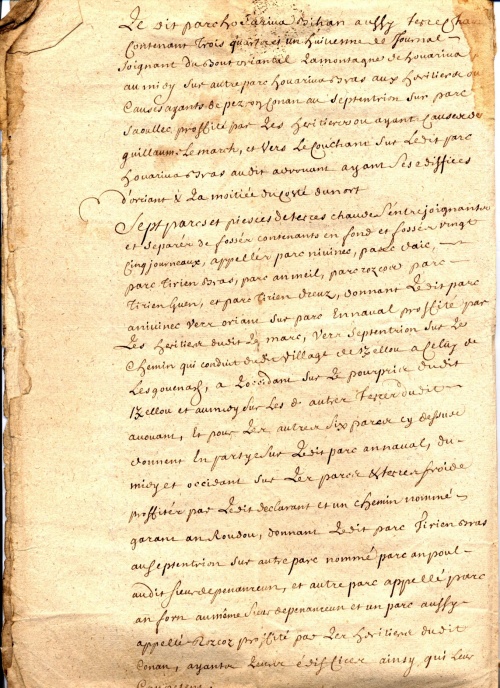 Le dit parc hoüariva Bihan aussy terre chau
Contenant Trois quarts et un huivenne de Journal
Joignant du Bout oriantal Lamontagne de houariva
au midy sur autre parc houariva Bras aux heritiers ou
Causeayants de Conan au Septentrion sur parc
proffité par Les heritiers ou ayant Causes de
guillaume Le march, et vers Le Couchant sur Ledit parc
houariva Bras audit advouant ayant Ses Ediffices
d'oriant & La moitiée du Costé du nort
Sept parcs et piesces de terres chaudes s'entrejoignantes
et Separés de fossés contenants en fond et fossés vingt
Cinq journeaux, appellés parc nivinec, parc
parc Tirien Bras, parc an meil, parc rozcoz parc
Tirien Guen, et parc Tirien Creuz, donnant Ledit parc
anivinec vers oriant sur parc Ennaval proffité par
Les heritiers dudit Le marc, vers Septentrion sur Le
Chemin qui conduit dudit village de Izellou a Celuy de
Lesgouenach, a Loccidant sur Le pourpris dudit
Izellou et au midy sur Les autres terres dudit
avouant, Et pour Les autres Six parcs cy dessus
donnent En partye sur Ledit parc annaval, du
midy et occidant sur Les parcs & terres froides
proffités par Ledit declarant et un chemin nommé
garant an Roudou, donnant Ledit parc Tirien Bras
au Septentrion sur autre parc nommé parc an poul
audit sieur de penanreun, et autre parc appellé parc
an forn au même Sieur de penanreun et un parc aussy
appellé Rozcoz proffité par Les heritiers dudit
Conan, ayantes Leurs Ediffices ainsy qui Leur